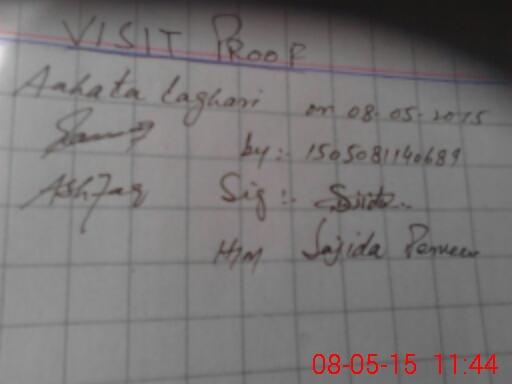 VISIT PROOF
Aahata Laghari on 08-05-2015
by:- 1505081140689
Ashfaq Sig:-
H/M Sajida Perveen
08-05-15 11:44